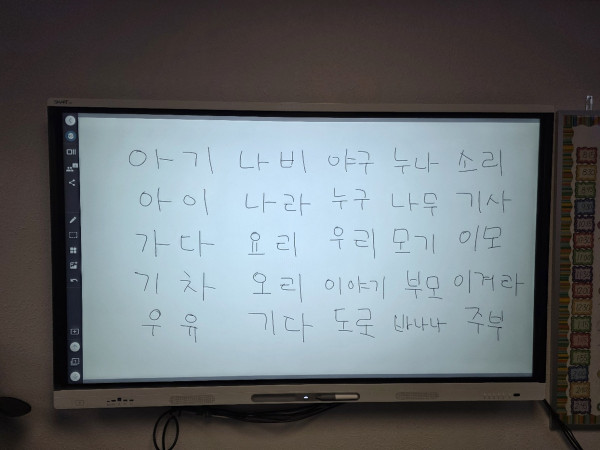 아기 나비 야구 누나 소리
아이 나라 누구 나무 기사
가다 요리 우리 모기 이모
기차 오리 이야기 부모 이겨라
우유 기다 도로 바나나 주부